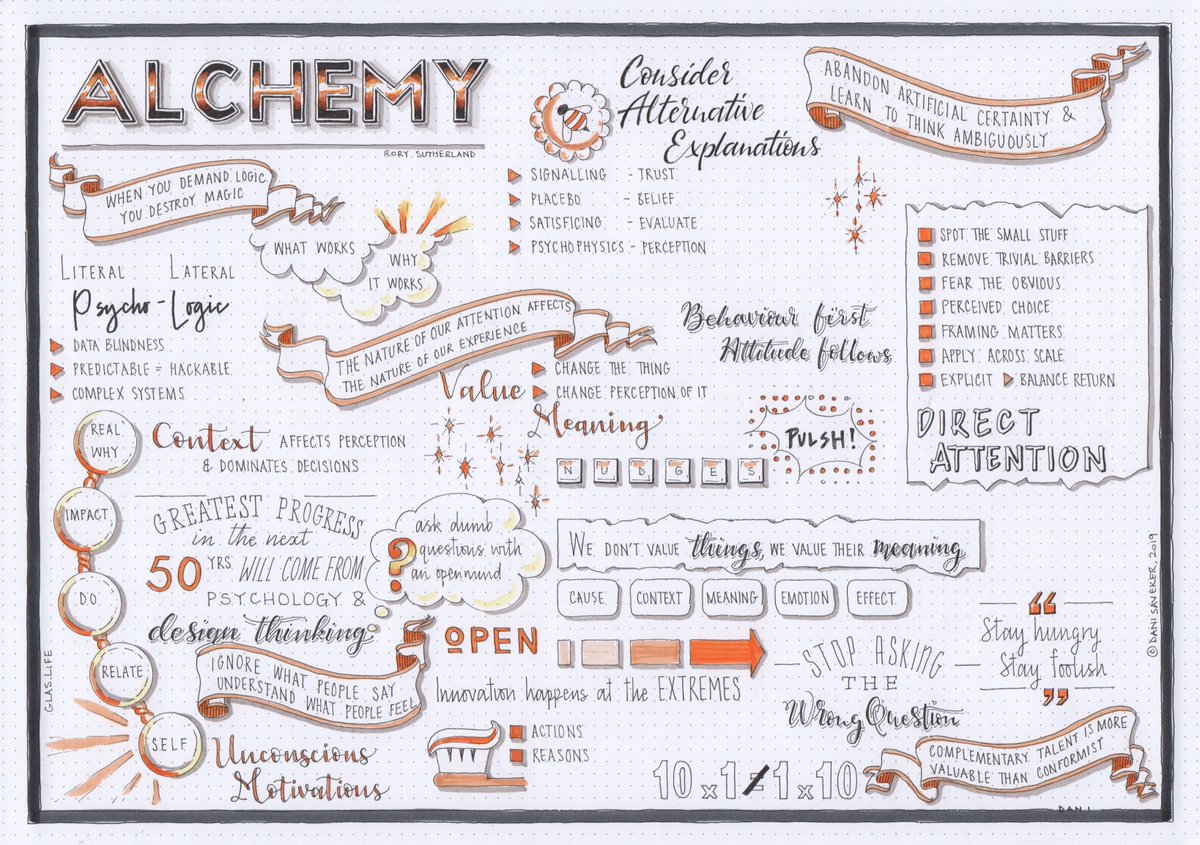 ALCHEMY
RORY SUTHERLAND
WHEN YOU DEMAND LOGIC
YOU DESTROY MAGIC
WHAT WORKS
WHY
IT WORKS
LITERAL LATERAL
Psycho-Logic
DATA BLINDNESS
PREDICTABLE = HACKABLE
COMPLEX SYSTEMS
Consider
Alternative
Explanations
SIGNALLING - TRUST
PLACEBO - BELIEF
SATISFICING - EVALUATE
PSYCHOPHYSICS - PERCEPTION
ABANDON ARTIFICIAL CERTAINTY &
LEARN TO THINK AMBIGUOUSLY
SPOT THE SMALL STUFF
REMOVE TRIVIAL BARRIERS
FEAR THE OBVIOUS
PERCEIVED CHOICE
FRAMING MATTERS
APPLY ACROSS SCALE
EXPLICIT ▷ BALANCE RETURN
DIRECT
ATTENTION
THE NATURE OF OUR ATTENTION AFFECTS
THE NATURE OF OUR EXPERIENCE
Behaviour first
Attitude follows
Value
CHANGE THE THING
CHANGE PERCEPTION OF IT
Meaning
NUDGES
PULSH!
REAL
WHY
IMPACT
DO
RELATE
SELF
Context AFFECTS PERCEPTION
& DOMINATES DECISIONS
GREATEST PROGRESS
in the next
50 YRS WILL COME FROM
PSYCHOLOGY &
design thinking
?
ask dumb
questions with
an open mind
WE DON'T VALUE things, WE VALUE THEIR meaning
CAUSE CONTEXT MEANING EMOTION EFFECT
IGNORE WHAT PEOPLE SAY
UNDERSTAND WHAT PEOPLE FEEL
OPEN
Innovation happens at the EXTREMES
STOP ASKING
THE
Wrong Question
"
Stay hungry
Stay foolish
"
Unconscious
Motivations
ACTIONS
REASONS
10 x 1 ≠ 1 x 10
COMPLEMENTARY TALENT IS MORE
VALUABLE THAN CONFORMIST
GLAS.LIFE
© DANI SAVEKER, 2019
DANI